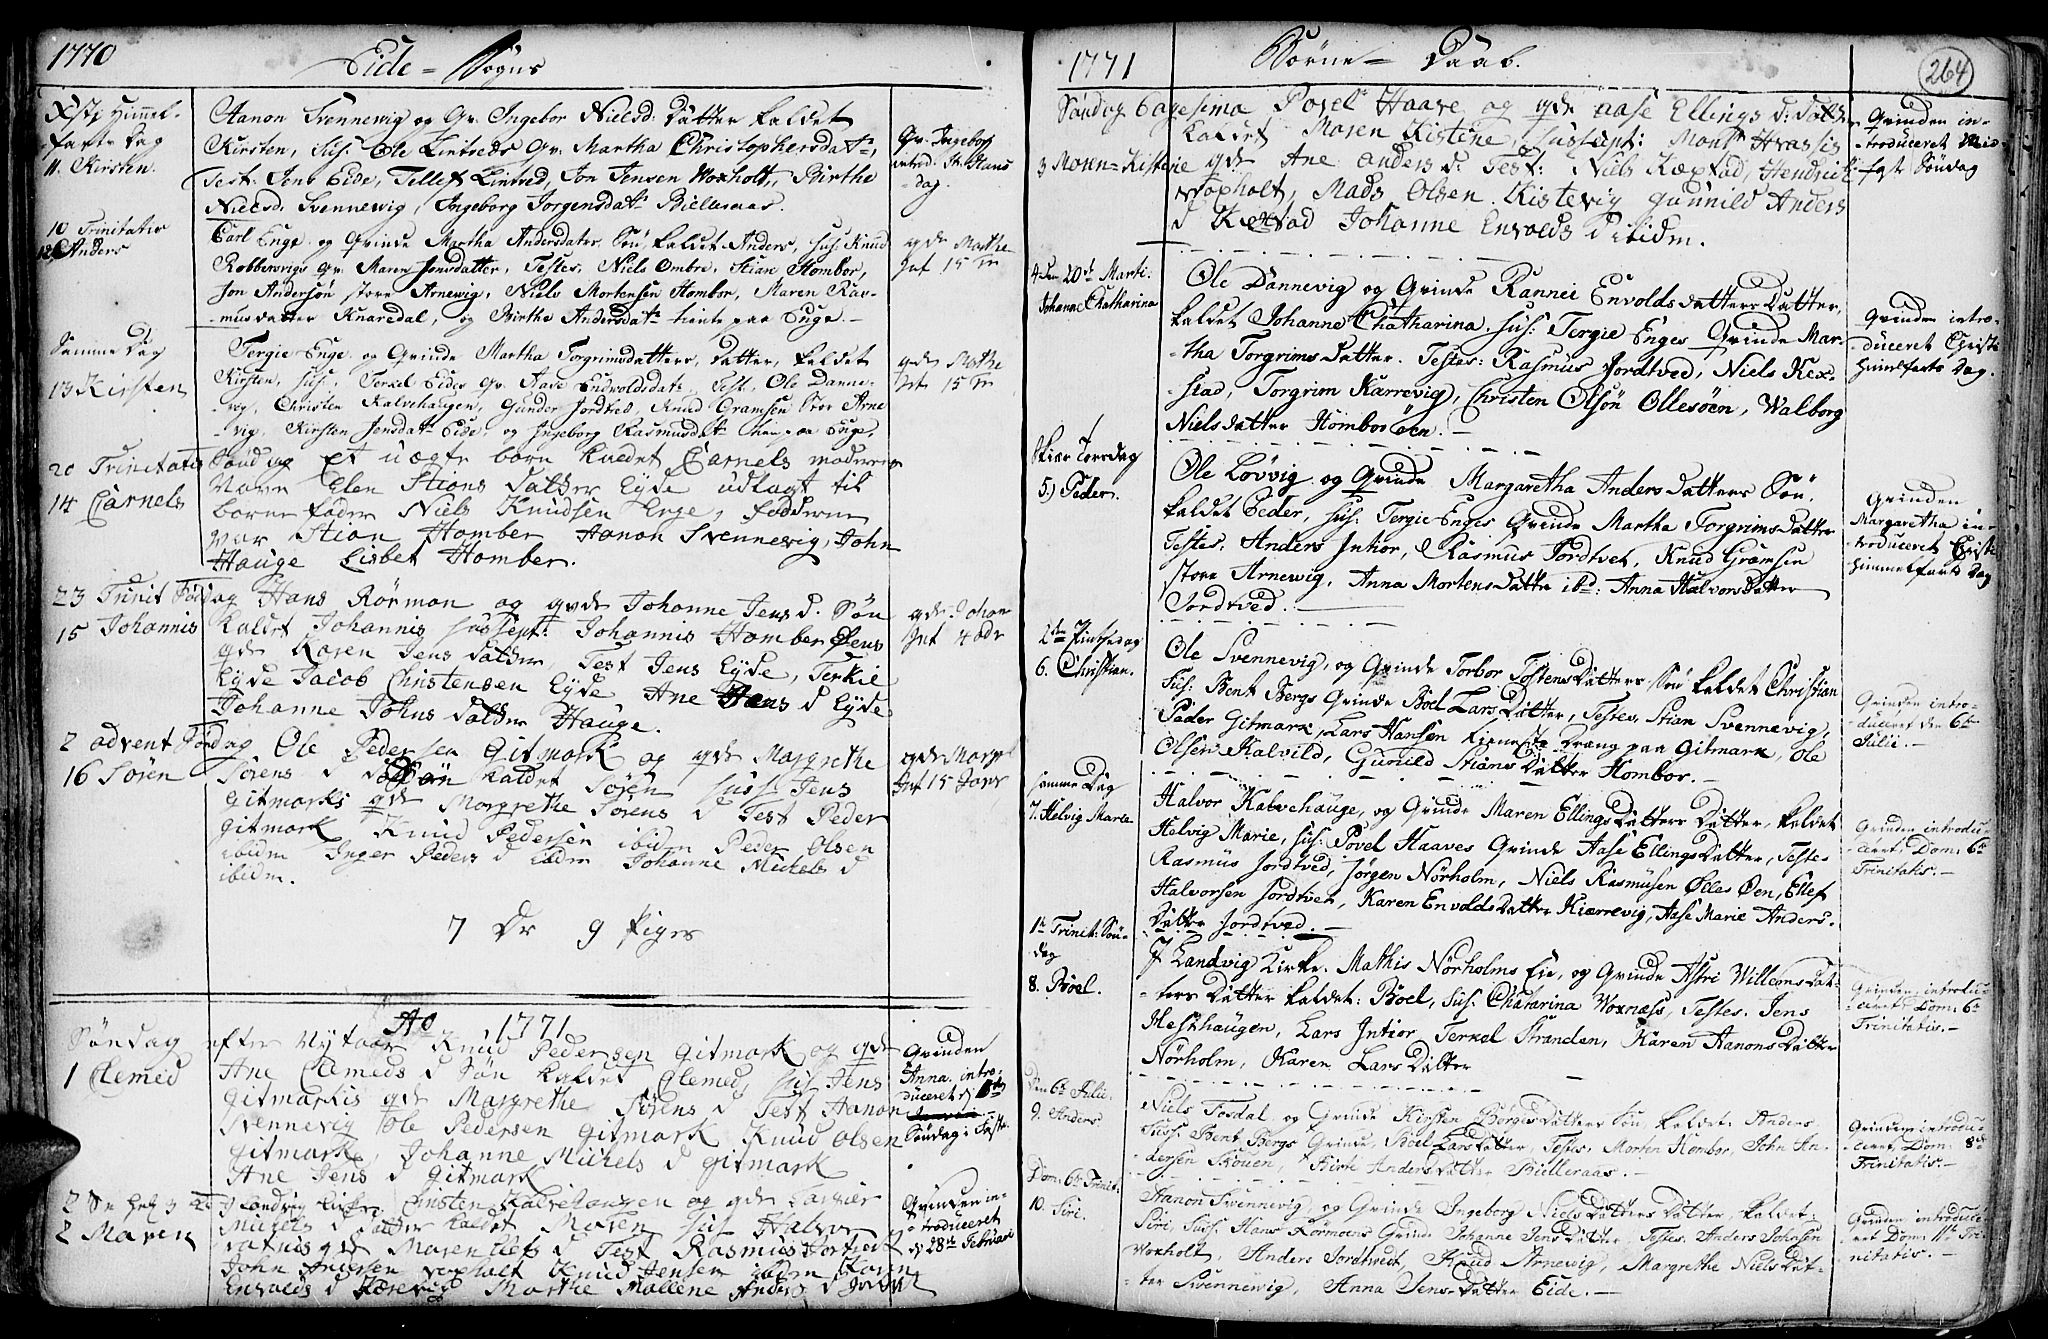 1770
Eide = Sogns
Xsti Himmel-
farts Dag
11. Kirsten.
Aanon Svennevig og Qv. Ingebor Nielsd: Datter kaldet
Kirsten, Sus. Ole Lintveds Qv. Martha Christophersdatr,
Test. Jens Eide, Tellef Lintved, Jon Jensen Woxholt, Birthe
Nielsd. Svennewig, Ingeborg Jorgensdatr Biellaaas.
Qv. Ingebor
introd. St. Hans
dag.
10 Trinitatis
12 Anders
Carl Enge og Qvinde Martha Andersdater Søn, kaldet Anders, Sus: Knud
Robbersvigs Qv. Maren Jensdatter, Testes, Niels Ombre, Stian Hombor,
Jon Andersøn store Arnewig, Niels Mortensen Hombor, Maren Ras-
musdatter Knaredal, og Birthe Andersdatr tiente paa Enge.
qde Marthe
Int 15 Tr
Samme Dag
13 Kirsten
Tergie Enge og Qvinde Martha Torgrimsdatters Datter, kaldet
Kirsten, Sus. Terkel Eides Qv. Aase Endvoldsdatr, Test. Ole Danne-
vig, Christen Kalvehaugen, Gunder Jordtved, Knud Gramsen Stor Arne
vig, Kirsten Jensdatr Eide, og Ingeborg Rasmusdatr paa Enge.
qde Marthe
Int 15 Tr
20 Trinitatis
14 Carnels
Søndag et uægte barn kaldet Carnels moderens
Navn Elen Stians datter Eyde udlagt til
barne fader Niels Knudsen Enge, fadderne
var Stian Homber Aanon Svennevig, John
Hauge Lisbet Homber.
23 Trinit Søndag
15 Johannis
Hans Rörmon og qvde Johanne Jens d. Søn
kaldet Johannis Sussept: Johannis Homber Jens
qde Karen Jens datter, Test Jens Eyde, Terkil
Eyde Jacob Christensen Eyde Ane Jens d Eyde
Johanne Johns datter Hauge.
qde Johan
Int 4 adv
2 advent Søndag
16 Søren
Ole Pedersen Gitmark og qde Margrethe
Sørens d Søn kaldet Søren Suss Jens
Gitmarks qde Margrethe Sørens d Test Peder
Gitmark Knud Pedersen ibidem Peder Olsen
ibidm Inger Peders d ibdm Johanne Michels d
ibidm.
qde Margr
Int 15 Janr
7 Dr 9 Piger
Ao 1771
Søndag efter Nytaar
1 Clemed
Knud Pedersen Gitmark og qde
Ane Clemeds d Søn kaldet Clemed, Sus Jens
Gitmarkis qde Margrethe Sørens d Test Aanon
Svennevig Ole Pedersen Gitmark Knud Olsen
Gitmark, Johanne Michels d gitmark
Ane Jens d Gitmark
Qvinden
Anna. intro-
duceret
Søndag i Faste.
2 Maren
Landvig Kirke, Christen Kalvehaugen og qde
Michels d datter kaldet Maren Sus Halvor
qde Maren d Test Rasmus Jortvedt
John Andersen voxholt Knud Jensen ibidm Karen
Envolds d Kærevig Marthe Mallene Anders d Jortvet
Qvinden in-
troduceret
d 28de Februari
1771
Børne = Daab.
264
Søndag Sagesima
3 Monn=Kistene
Povel Haave og qde Aase Ellings d: datr
kaldet Maren Kistene, Sustept: Mont
qde Ane Anders d: Test: Niels Kæxtad, Hendrick
Voxholt, Mads Olsen Kistevig Gunnild Anders
d Kextad Johanne Envolds d ibidm.
Qvinden in-
troduceret Mid-
fast Søndag
4. Den 20de Marti:
Johanne Chatharina
Ole Dannevig og Qvinde Rannei Envoldsdatters Datter,
kaldet Johanne Chatharina. Sus: Tergie Enges Qvinde Mar-
tha Torgrims Datter. Testes: Rasmus Jordtved, Niels Kex-
stad, Torgrim Karrevig, Christen Olsøn Ollesøen, Walborg
Niels datter Homborøen.
Qvinden intro-
duceret Christi
Himelfarts Dag.
Skier Torsdag
5.) Peder.
Ole Lovvig og Qvinde Margaretha Anders Datters Søn,
kaldet Peder, Sus: Tergie Enges Qvinde Martha Torgrims Datter
Testes, Anders Intior, Rasmus Jordtvet, Knud Gramsen
store Arnewig, Anna Mortens Datter ibd: Anna Halvors Datter
Jordtved.
Qvinden
Margaretha in-
troduceret Christi
Himmelfarts Dag
2den Pintsedag
6. Christian.
Ole Svennevig, og Qvinde Torbor Tostens Datters Søn kaldet Christian
Sus: Bent Bergs Qvinde Boel Lars Datter, Testes, Stian Svennevig,
Peder Gitmark, Lars Hansen tieneste Drang paa Gitmark, Ole
Olsen Kalvild, Gunild Stians Datter Hombor.
Qvinden intro-
duceret den 6te
Julii.
samme Dag
7. Helvig Maria
Halvor Kalvehauge, og Qvinde Maren Ellings Datters Datter, kaldet
Helvig Marie, Sus: Povel Haaves Qvinde Aase Ellings Datter, Testes
Rasmus Jordtved, Jørgen Nörholm, Niels Rasmusen Ølles Øen, Ellef
Halvorsen Jordtvet, Karen Envolds Datter Kiærrevig, Aase Marie Anders-
Datter Jordtved.
Qvinden introdu-
ceret Dom: 6te
Trinitatis.
1te Trinit: Søn-
dag
8. Böel.
I Landvig Kirke. Mathis Nörholms Eie, og Qvinde Astri Willems Dat-
ters Datter kaldet: Böel, Sus: Chatarina Woxnæss, Testes. Jens
Hesthaugen, Lars Intior, Terkel Stranden, Karen Aanons Datter
Nörholm, Karen Lars Datter
Qvinden introdu-
ceret Dom: 6te
Trinitatis.
Den 6te Julii.
9. Anders
Niels Tosdal og Qvinde Kirsten Borges Datters Søn, kaldet: Anders
Sus: Bent Bergs Qvinde, Böel Lars Datter, Testes, Morten Hombor, John An-
dersen Skouen, Birte Anders Datter Bielleraas.
Qvinden introdu-
ceret, Dom: 8de
Trinitatis.
Dom: 6te Trinit:
10. Siri.
Aanon Svennevig, og Qvinde Ingeborg Niels Datters Datter, kaldet:
Siri, Sus: Hans Rörmoens Qvinde Johanne Jens Datter, Testes. Anders Johnsen
Woxholt, Anders Jordtvedt, Knud Arnewig, Margrethe Niels Dat-
ter Svennewig, Anna Jens Datter Eide.
Qvinden introdu-
ceret Dom: 11te Tri-
nitatis.